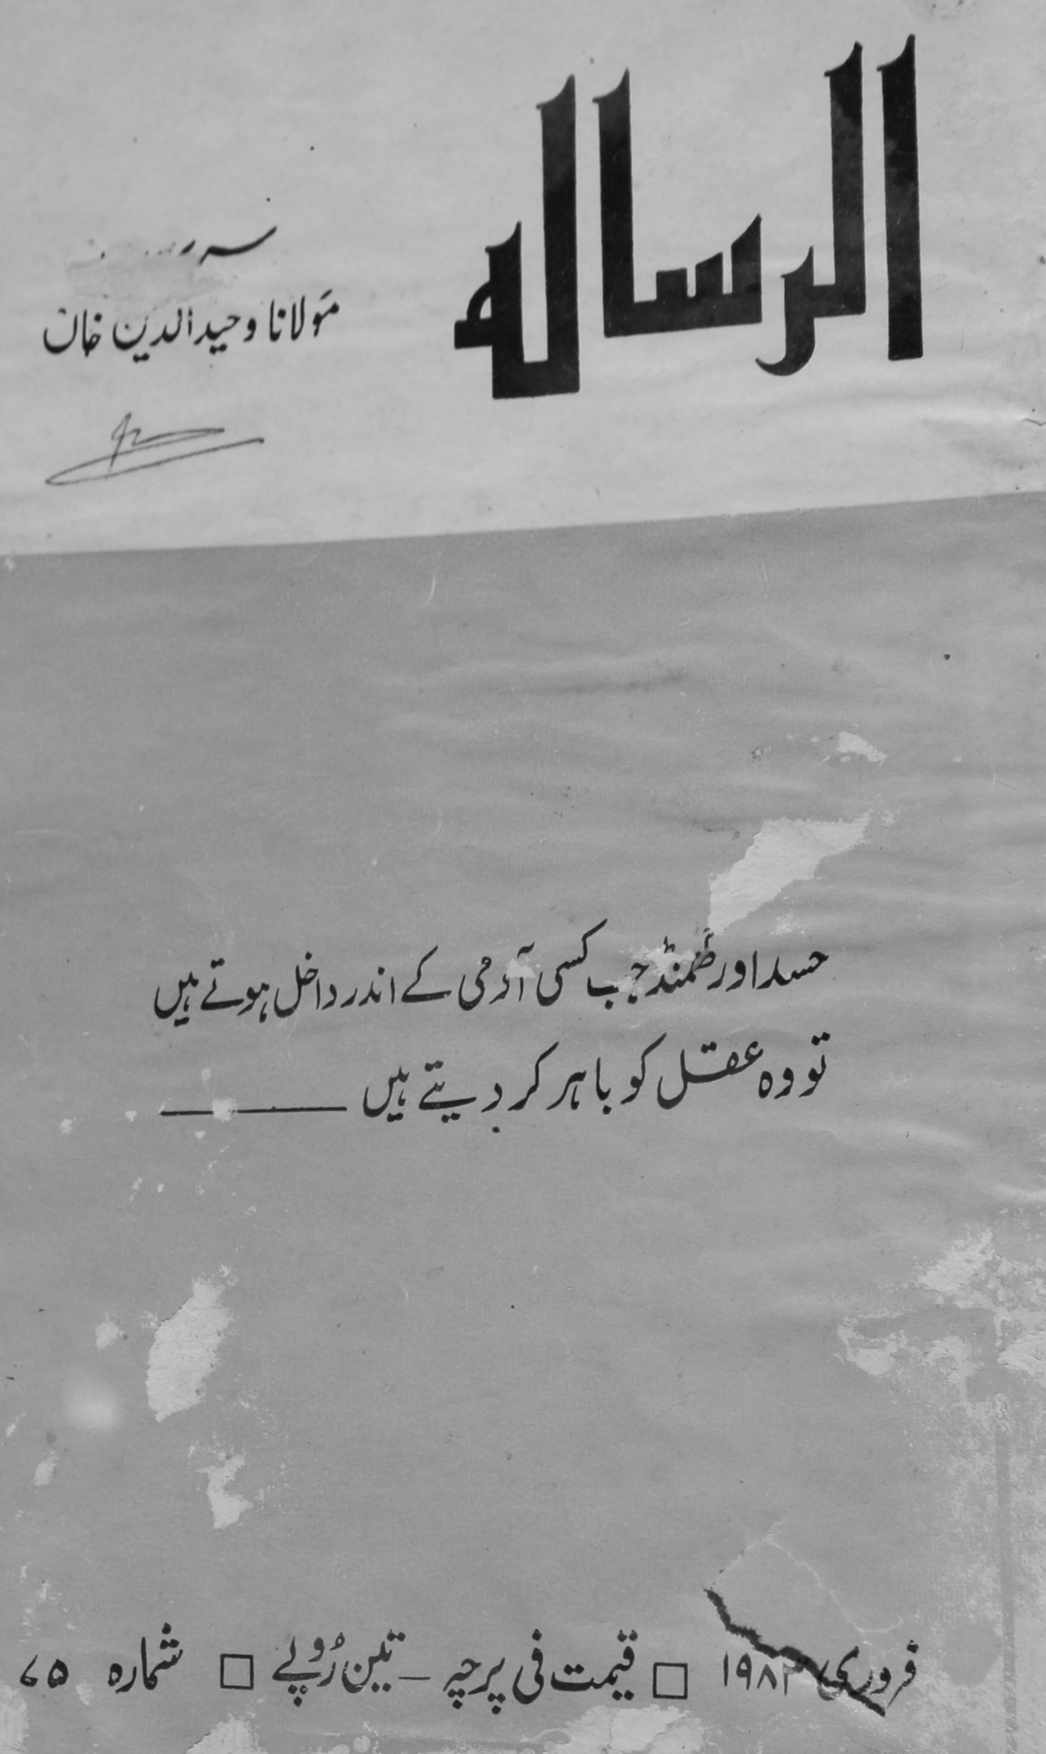 الرسالہ
مولانا وحید الدین خاں
حسد اور گھمنڈ جب کسی آدمی کے اندر داخل ہوتے ہیں
تو وہ عقل کو باہر کر دیتے ہیں ـــــــ
فروری ۱۹۸۳ □ قیمت فی پرچہ ـ تین روپے □ شمارہ ۷۵